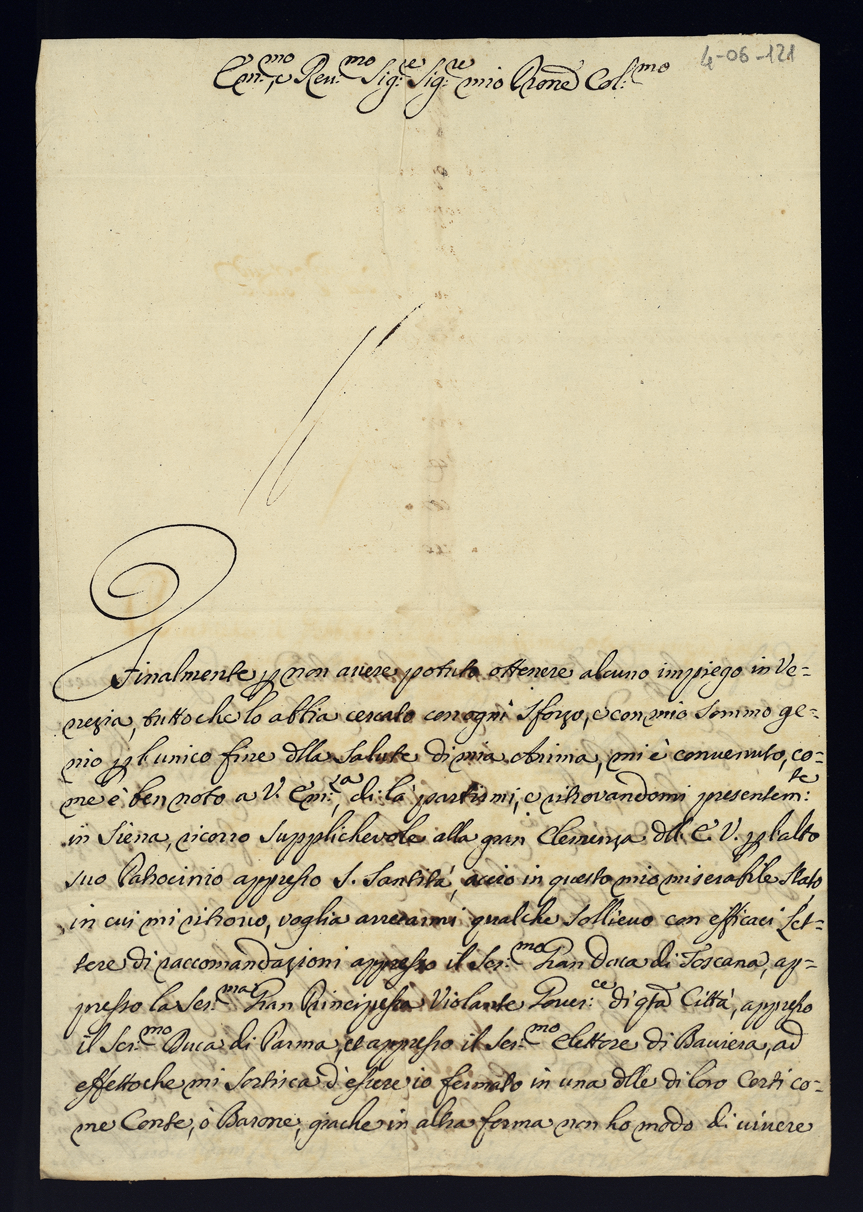 4-06-121
Em:mo e Reu:mo Sig:re Sig:re mio Prone Col:mo
Finalmente p non auere potuto ottenere alcuno impiego in Ve=
nezia, tutto che lo abbia cercato con ogni sforzo, e con mio sommo ge=
nio p l'unico fine dlla salute di mia Anima, mi è conuenuto, co=
me è ben noto a V. Em:za, di là partirmi, e ritrouandomi presentem:te
in Siena, ricorro supplicheuole alla gran Clemenza dll' E. V. p l'alto
suo Patrocinio appresso S. Santità, acciò in questo mio miserabile stato,
in cui mi ritrouo, voglia arrecarmi qualche sollieuo con efficaci Let=
tere di raccomandazioni appresso il Ser:mo Gran Duca di Toscana, ap=
presso la Ser:ma Gran Principessa Violante Gouer:ce di qta Città, appresso
il Ser:mo Duca di Parma, et appresso il Ser:mo Elettore di Bauiera, ad
effetto che mi sortisca d'essere io fermato in una dlle di loro Corti co=
me Conte, ò Barone, giache in altra forma non ho modo di uiuere